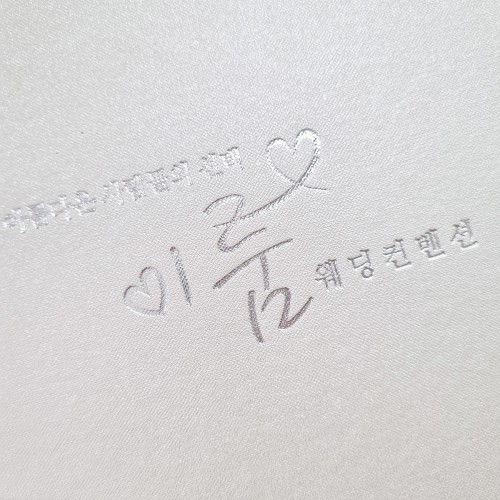 아름다운 사람들의
이룸 웨딩컨벤션